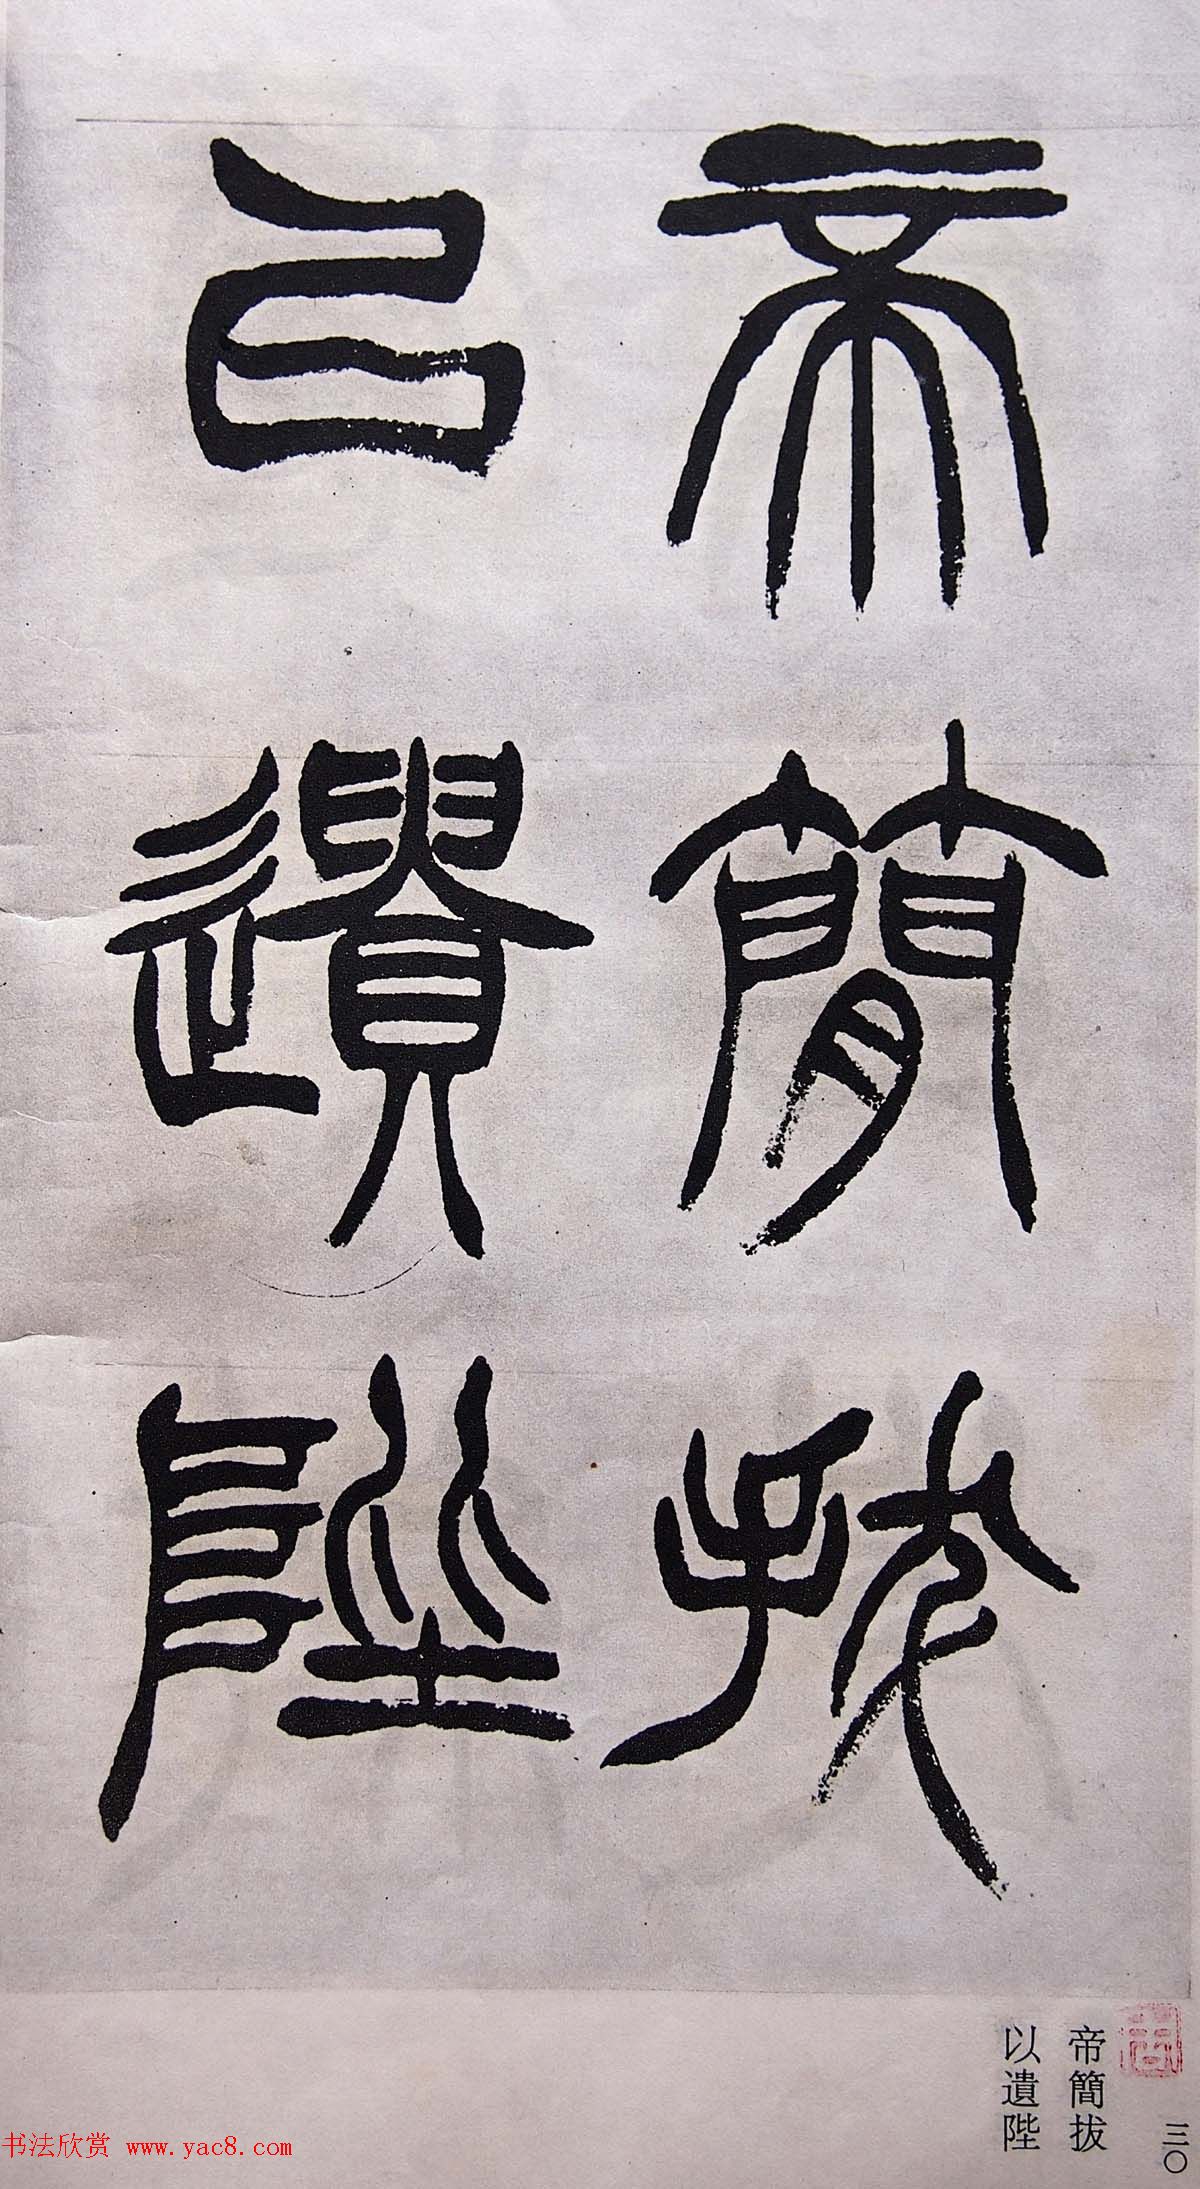 帝簡拔
以遺陛
帝簡拔
以遺陛
三〇
书法欣赏 www.yac8.com